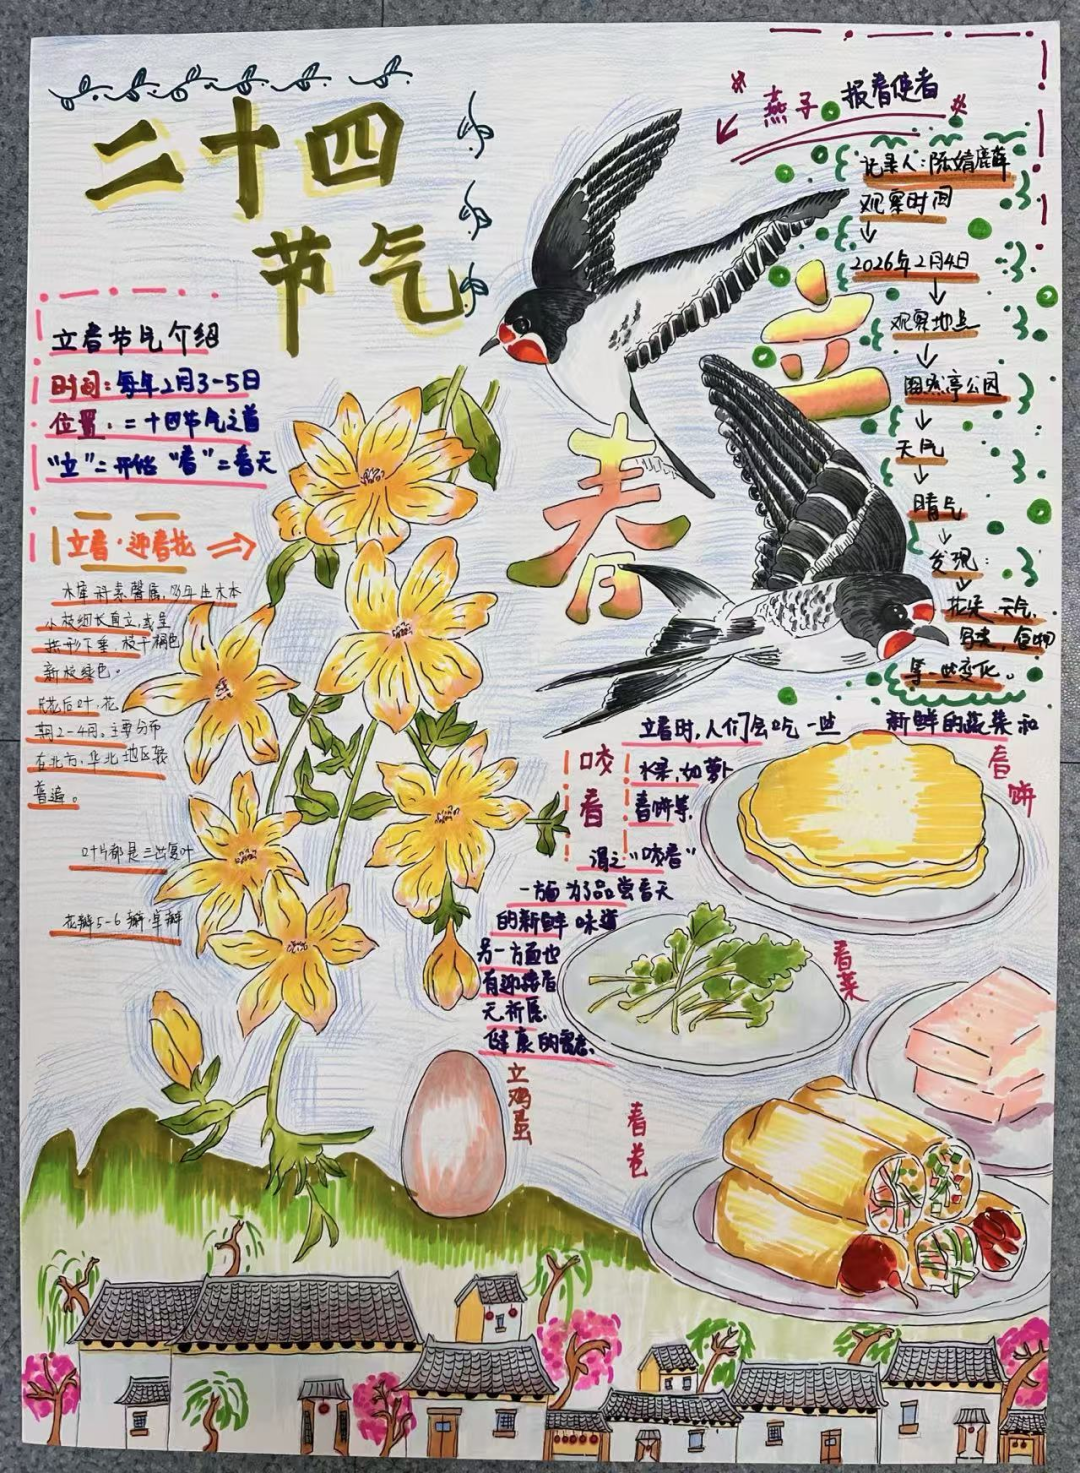 二十四
节气
立春节气介绍
时间：每年2月3-5日
位置：二十四节气之首
"立"=开始 "春"=春天
立春·迎春花
木犀科素馨属，多年生木本
小枝细长直立，或呈
拱形下垂，枝干褐色
新枝绿色。
先花后叶，花
期2-4月。主要分布
在北方，华北地区较
普遍。
叶片都是三出复叶
花瓣5-6瓣，单瓣
燕子 报春使者
记录人：陈婧
观察时间
2026年2月4日
观察地点
陶然亭公园
天气
晴气
发现：
花朵，天气，
食物
等…些变化。
立春
立春时，人们会吃一些 新鲜的蔬菜和
水果，如萝卜
春饼等，
谓之"咬春"
咬春
一方面为了品尝春天
的新鲜味道
另一方面也
有迎接春
天祈愿
健康的寓意。
春饼
春菜
立鸡蛋
春卷